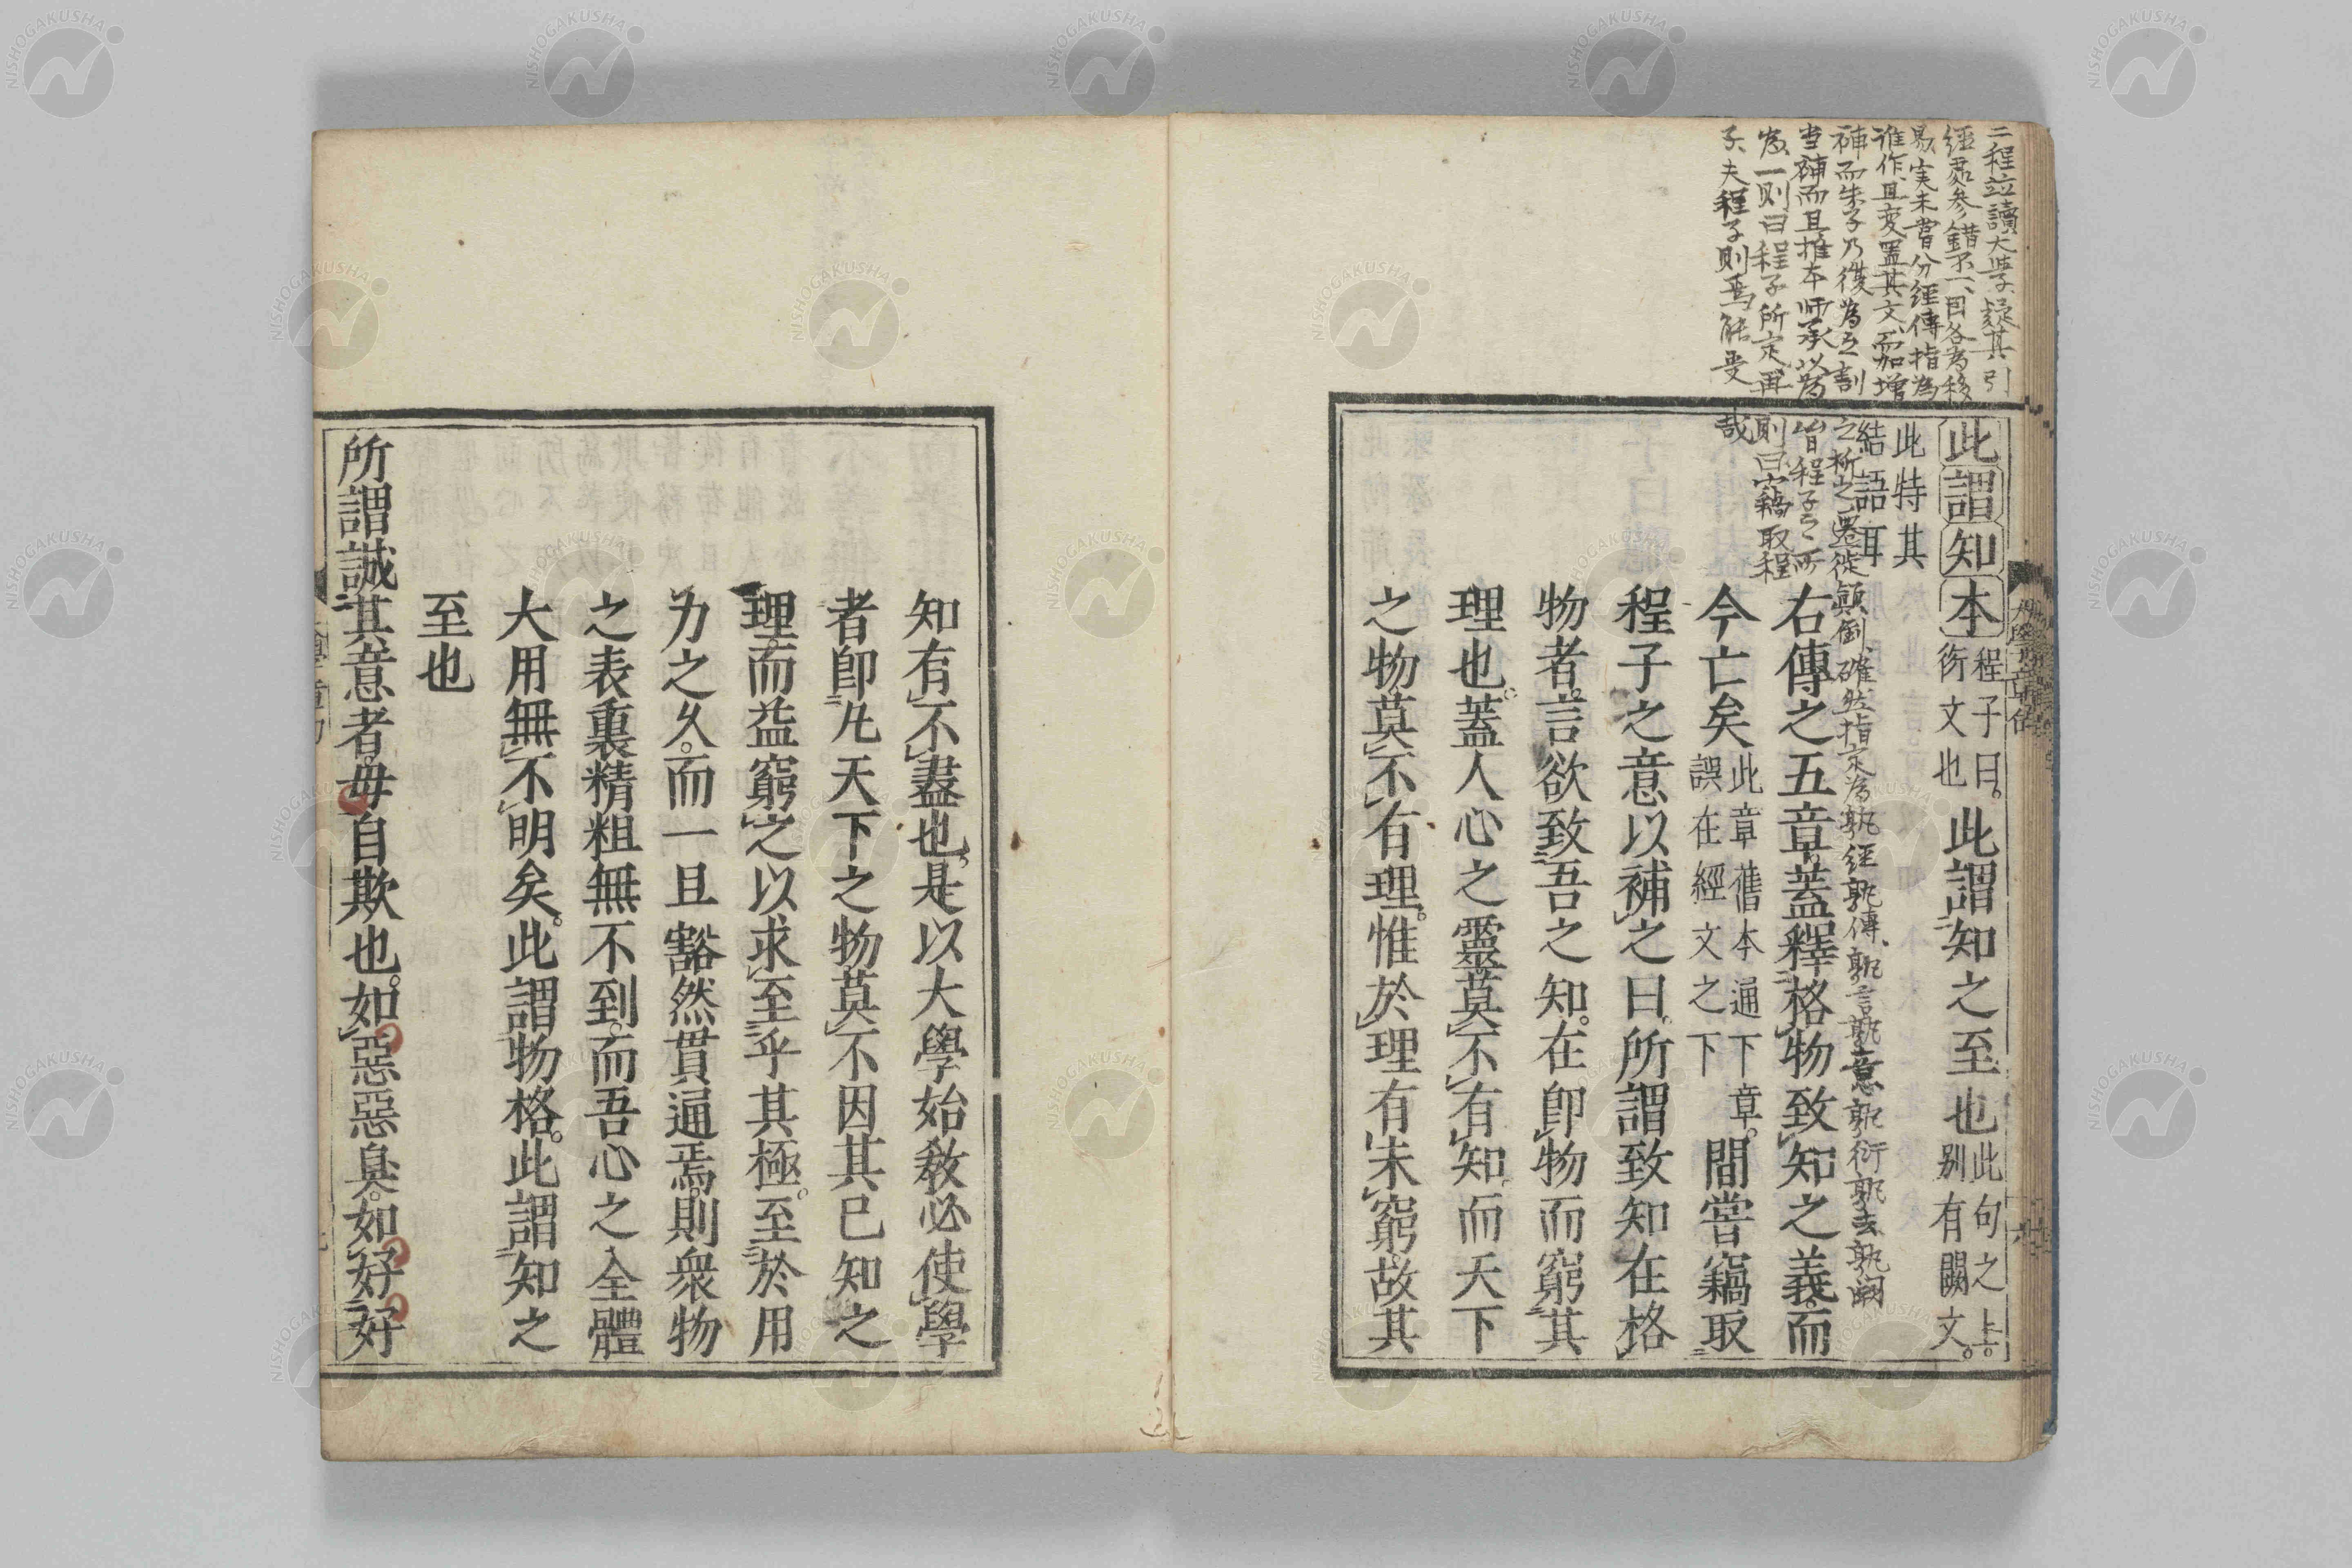 二程竝讀大学疑其引
經處参錯不一、因各為移
易、実未嘗分經傳、指為
誰作、且変置其文、而加増
補、而朱子乃復為之割
之析之、遷徙顛倒、確然指定為孰經孰傳、孰言孰意孰衍孰去孰闕
当補、而且推本師承、以為
皆程子之所
為、一則曰程子所定、再
則曰竊取程
子、夫程子則焉能受
哉
此謂知本
程子曰。
衍文也
此謂知之至也
此句之上。
別有闕文。
此特其
結語耳
右傳之五章。蓋釋格物致知之義。而
今亡矣
此章舊本通下章。
誤在經文之下
間嘗竊取
程子之意以補之曰。所謂致知在格
物者。言欲致吾之知。在即物而窮其
理也。蓋人心之靈莫不有知而天下
之物莫不有理。惟於理有未窮。故其
知有不盡也。是以大學始敎必使學
者即凡天下之物莫不因其已知之
理。而益窮之以求至乎其極。至於用
力之久。而一旦豁然貫通焉。則衆物
之表裏精粗無不到。而吾心之全體
大用無不明矣。此謂物格。此謂知之
至也
所謂誠其意者。毋自欺也。如惡惡臭。如好好
NISHOGAKUSHA